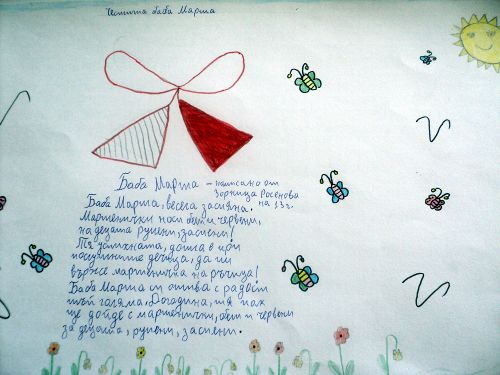 Честита баба Марта
Баба Марта - написано от
Зорница Росенова
на 13 г.
Баба Марта, весела засмяна.
Мартенички носи бели и червени,
на децата румени, засмени!
Тя усмихната, дошла е при
послушните дечица, да им
върже мартеничка на ръчица!
Баба Марта си отива с радост
тъй голяма, Догодина, тя пак
ще дойде с мартенички, бели и червени
за децата, румени, засмени.